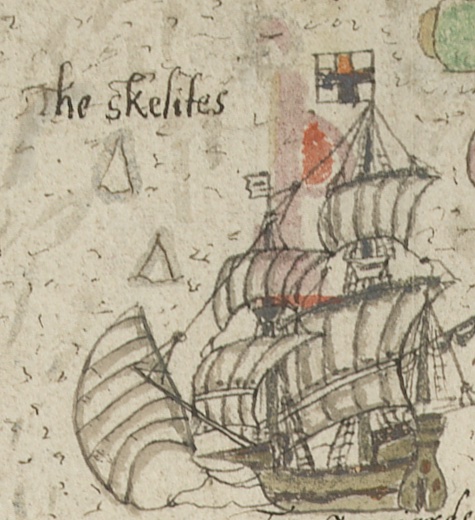 the skelites